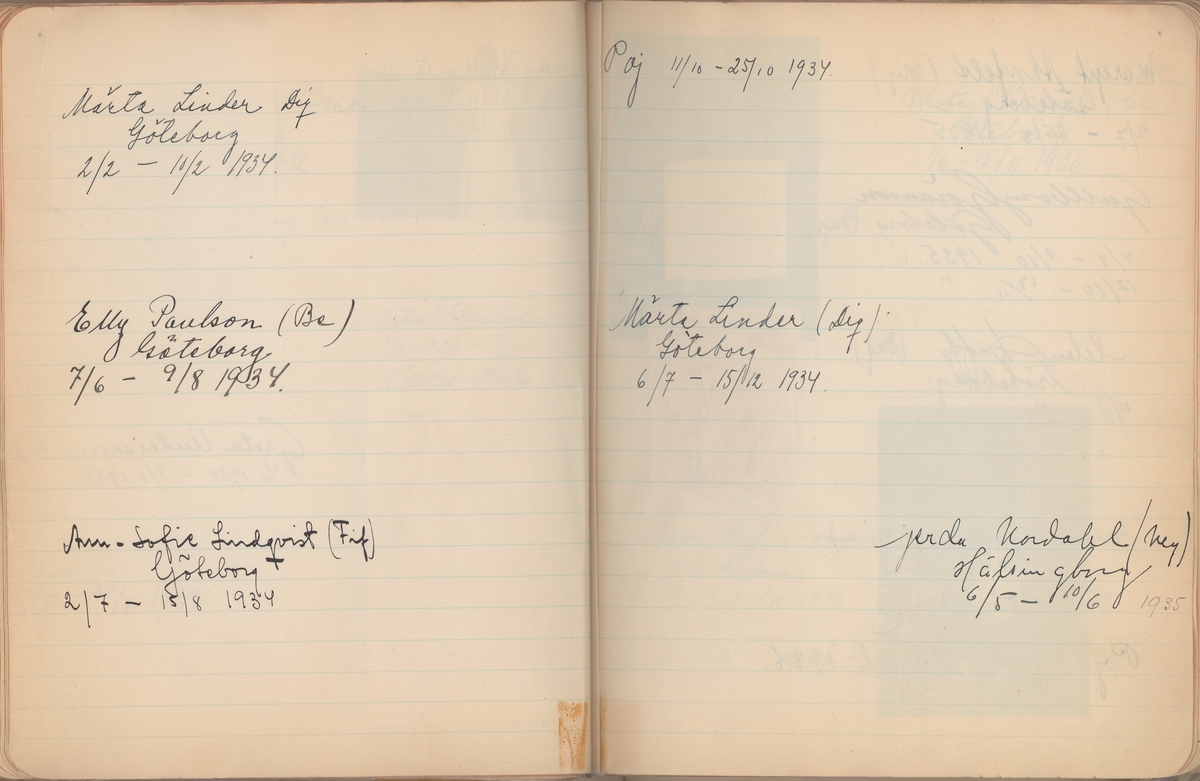 Märta Linder Dig
Göteborg
2/2 — 10/2 1934.
Elly Paulson (Be)
Göteborg
7/6 — 9/8 1934.
Ann-Sofie Lindqvist (Fif)
Göteborg
2/7 — 15/8 1934
Poj 11/10 - 25/10 1934.
Märta Linder (Dig)
Göteborg
6/7 — 15/12 1934.
Nordahl
Hälsingborg
6/5 — 10/6 1935